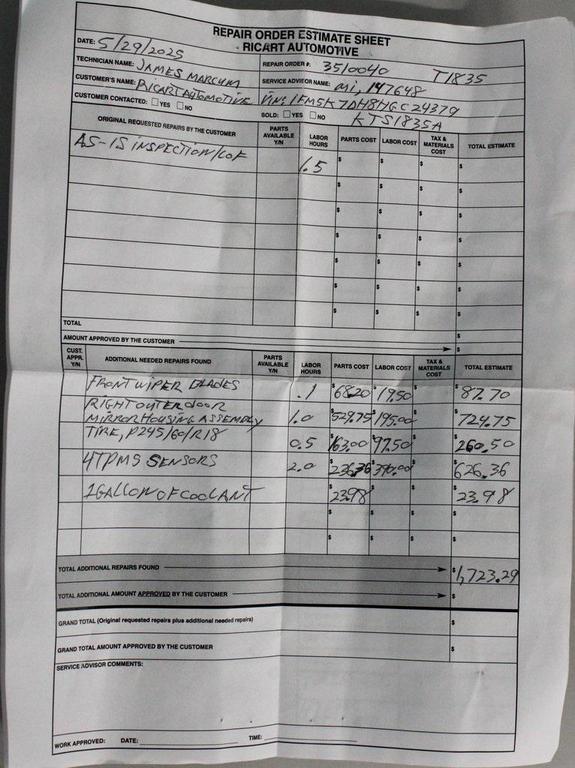 REPAIR ORDER ESTIMATE SHEET
RICART AUTOMOTIVE
DATE: 5/29/2025
TECHNICIAN NAME: JAMES MARCUM REPAIR ORDER #: 3510040 T1835
CUSTOMER'S NAME: RICART AUTOMOTIVE SERVICE ADVISOR NAME: Mi, 147648
CUSTOMER CONTACTED: ☐ YES ☐ NO VIN: 1FM5K7DH8HGC24379
SOLD: ☐ YES ☐ NO KTS1835A
ORIGINAL REQUESTED REPAIRS BY THE CUSTOMER PARTS AVAILABLE Y/N LABOR HOURS PARTS COST LABOR COST TAX & MATERIALS COST TOTAL ESTIMATE
AS-IS INSPECTION/COF 1.5 $ $ $ $
$ $ $ $
$ $ $ $
$ $ $ $
$ $ $ $
$ $ $ $
$ $ $ $
TOTAL $
AMOUNT APPROVED BY THE CUSTOMER $
CUST. APPR. Y/N ADDITIONAL NEEDED REPAIRS FOUND PARTS AVAILABLE Y/N LABOR HOURS PARTS COST LABOR COST TAX & MATERIALS COST TOTAL ESTIMATE
FRONT WIPER BLADES .1 $68.20 $19.50 $ $87.70
RIGHT OUTER DOOR
MIRROR HOUSING ASSEMBLY 1.0 $529.75 $195.00 $ $724.75
TIRE, P245/60/R18 0.5 $163.00 $97.50 $ $260.50
4 TPMS SENSORS 2.0 $236.36 $390.00 $ $626.36
1 GALLON OF COOLANT $23.98 $ $ $23.98
$ $ $ $
$ $ $ $
TOTAL ADDITIONAL REPAIRS FOUND $1,723.29
TOTAL ADDITIONAL AMOUNT APPROVED BY THE CUSTOMER $
GRAND TOTAL (Original requested repairs plus additional needed repairs) $
GRAND TOTAL AMOUNT APPROVED BY THE CUSTOMER $
SERVICE ADVISOR COMMENTS:
WORK APPROVED: DATE: TIME: